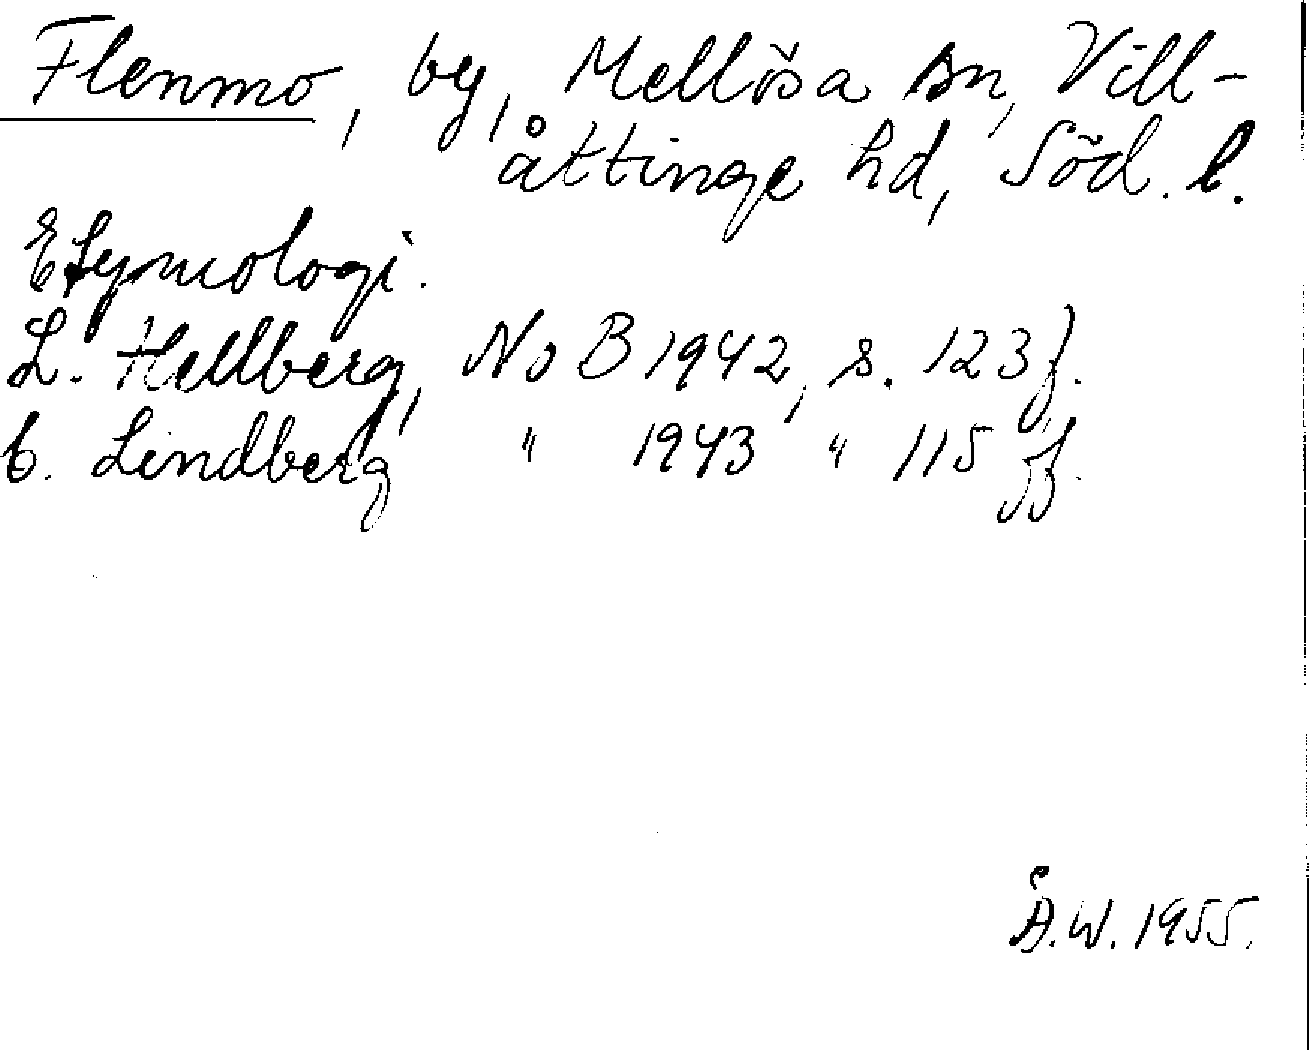 Flenmo, by, Mellösa sn, Vill-
åttinge hd, Söd. l.
Etymologi.
L. Hellberg, NoB 1942, s. 123 f.
C. Lindberg " 1943 " 115 ff.
Å.W. 1955.